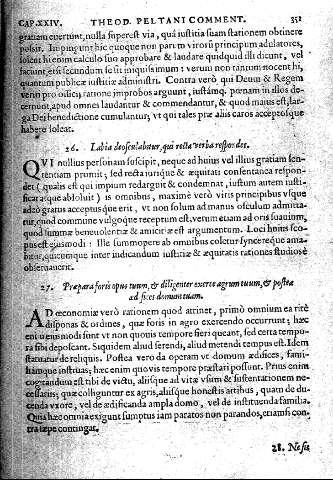 CAP.XXIV. THEOD. PELTANI COMMENT. 351
gratiam euertunt, nulla superest via, quâ iustitia suam stationem obtinere
possit. Impingunt hîc quoque non parùm virorũ principum adulatores,
solent hi enim calculo suo approbare & laudare quidquid illi dicunt, vel
faciunt, etsi secundùm se sit iniquissimum: verùm non tantùm nocent hi,
quantum publicæ iustitiæ administri. Contrà verò qui Deum & Regem
veniatione improbos arguunt, iustámq. pœnam in illos de-
cernunt, apud omnes laudantur & commendantur, & quod maius est, lar-
ga Dei benedictione cumulantur; vt qui tales præ aliis caros acceptosque
habere soleat.
26. Labia deosculabitur, qui recta verba respondet.
QVI nullius personam suscipit, neque ad huius vel illius gratiam sen-
tentiam promit; sed rectæ iurique & æquitati consentanea respon-
det (qualis est qui impium redarguit & condemnat, iustum autem iustifi-
cat atque absoluit) is omnibus, maximè verò viris principibus vsque
adeò gratus acceptusque erit, vt non solùm ad manus osculum admitta-
tur, quod commune vulgóque receptum est, verùm etiam ad oris suauium,
quod summæ beneuolentiæ & amicitiæ est argumentum. Loci huius sco-
pus est eiusmodi: Ille summopere ab omnibus coletur syncerèque ama-
bitur, quicumque inter iudicandum iustitiæ & æquitatis rationes studiosè
obseruauerit.
27. Præpara foris opus tuum, & diligenter exerce agrum tuum, & postea
ædifices domum tuam.
AD œconomiæ verò rationem quod attinet, primò omnium ea ritè
disponas & ordines, quæ foris in agro exercendo occurrunt; hæc
enim eiusmodi sunt vt non quouis tempore fieri queant, sed certa tempo-
ra sibi deposcant. Siquidem aliud serendi, aliud metendi tempus est. Idem
statuatur de reliquis. Postea verò da operam vt domum ædifices, fami-
liámque instruas; hæc enim quouis tempore præstari possunt. Prius enim
cogitandum est tibi de victu, aliisque ad vitæ vsum & sustentationem ne-
cessariis; quæ colliguntur ex agris, aliisque honestis artibus, quàm de du-
cenda vxore, vel de ædificanda ampla domo, vel de instruenda familia.
Quia hæc omnia exigunt sumptus iam paratos non parandos, etiamsi con-
tra sæpe contingat.
28. Ne sis